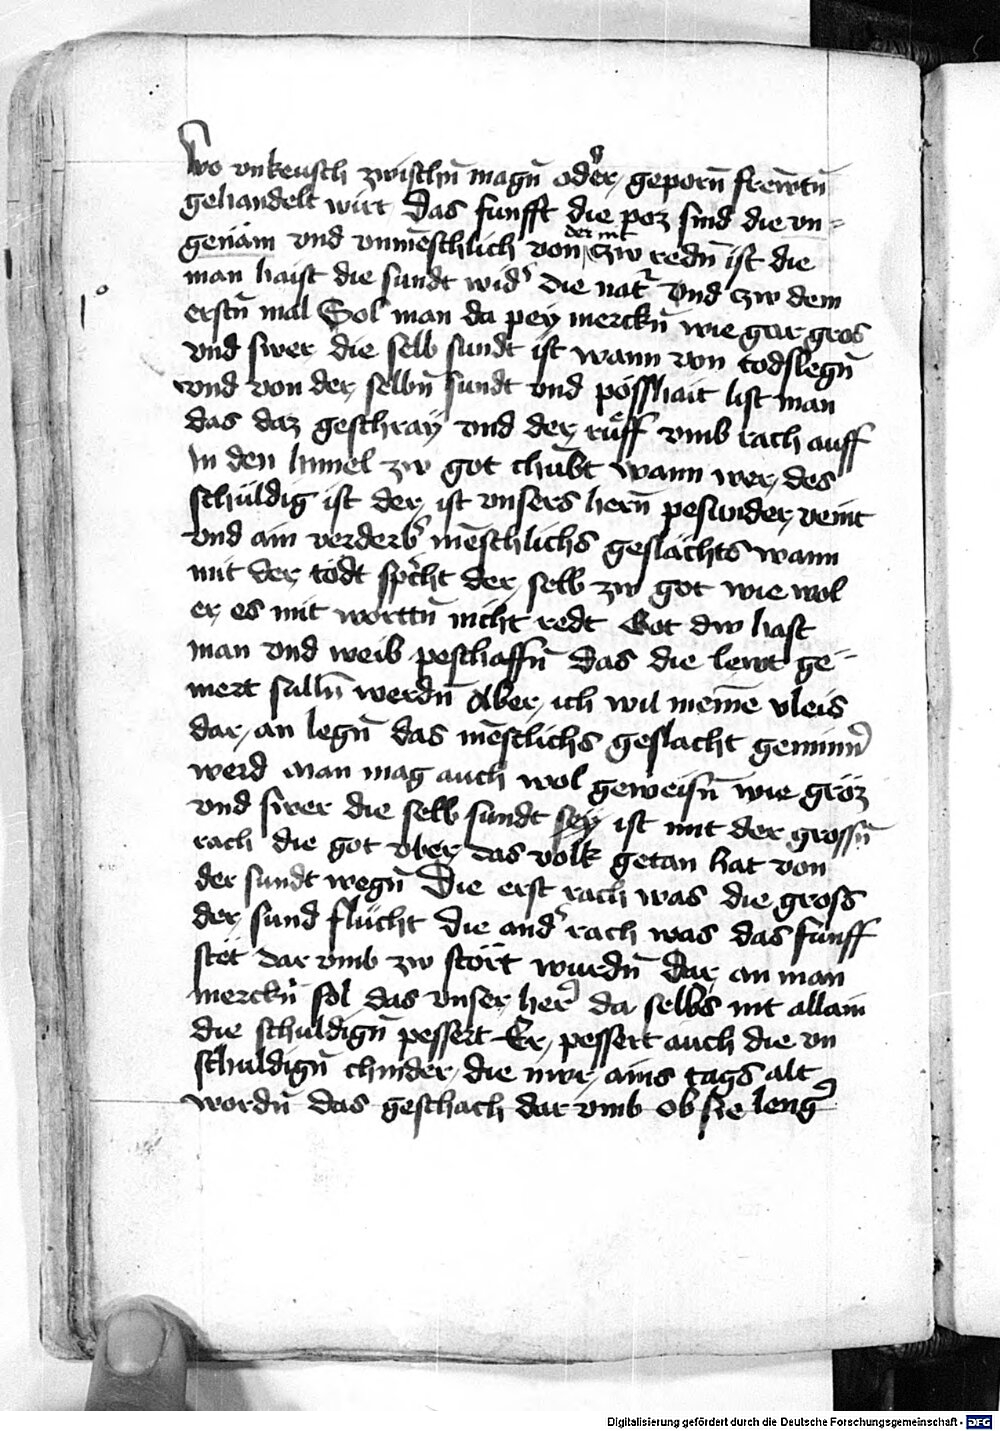 wo vnkeusch zwischn̄ magn̄ oder geporn̄ frewntn̄
gehandelt wirt Das funfft die poz sind die vn=
genäm vnd vnmēschlich von der nit zw redn̄ ist die
man haist die sundt wid' die nat' vnd zw dem
erstn̄ mal Sol man da pey merckn̄ wie gar gros
vnd swer die selb sundt ist wann von todslegn̄
vnd von der selbn̄ sundt vnd posshait list man
das daz geschray vnd der rüff vmb rach auff
In den himel zw got chübt wann wer des
schuldig ist der ist vnsers hern̄ pesunder veint
vnd ain verderb' mēschlichs geslächts wann
mit der tödt sp'cht der selb zw got wie wol
er es mit worttn̄ nicht redt Got dw hast
man vnd weib peschaffn̄ das die lewt ge=
mert sulln̄ werdn̄ Aber ich wil meinē vleis
dar an legn̄ das mēschlichs geslacht geminn'
werd Man mag auch wol geweisn̄ wie gröz
vnd swer die selb sundt sey ist mit der grossn̄
rach die got vber das volk getan hat von
der sundt wegn̄ Die erst rach was die gross
der sund flücht Die and' rach was das funff
stet dar vmb zw stört wurdn̄ Dar an man
merckn̄ sol das vnser her' da selbs nit allain
die schuldign̄ pessert Er pessert auch die vn
schuldign̄ chinder die nwr ains tags alt
wordn̄ das geschach dar vmb ob sie leng'
Digitalisierung gefördert durch die Deutsche Forschungsgemeinschaft - DFG